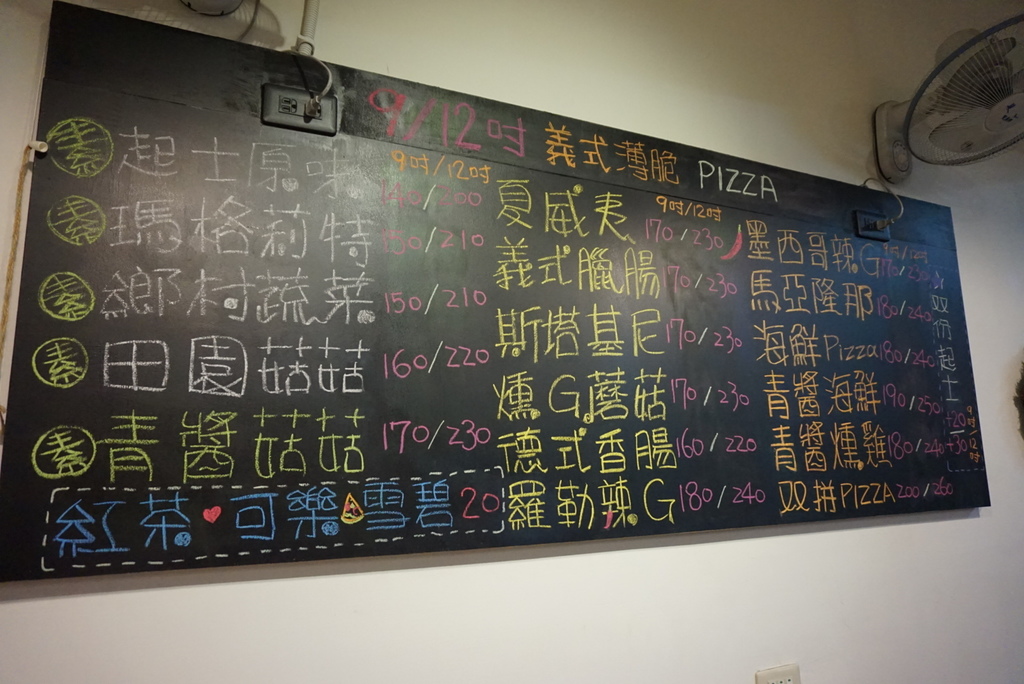 9/12吋 義式薄脆 PIZZA
9吋/12吋
素 起士原味 140/200
素 瑪格莉特 150/210
素 鄉村蔬菜 150/210
素 田園菇菇 160/220
素 青醬菇菇 170/230
紅茶 可樂 雪碧 20
9吋/12吋
夏威夷 170/230
義式臘腸 170/230
斯塔基尼 170/230
燻G蘑菇 170/230
德式香腸 160/220
羅勒辣G 180/240
9吋/12吋
墨西哥辣G 170/230
馬亞隆那 180/240
海鮮Pizza 180/240
青醬海鮮 190/250
青醬燻雞 180/240
双拼PIZZA 200/260
双份起士
+20 +30
9吋/12吋